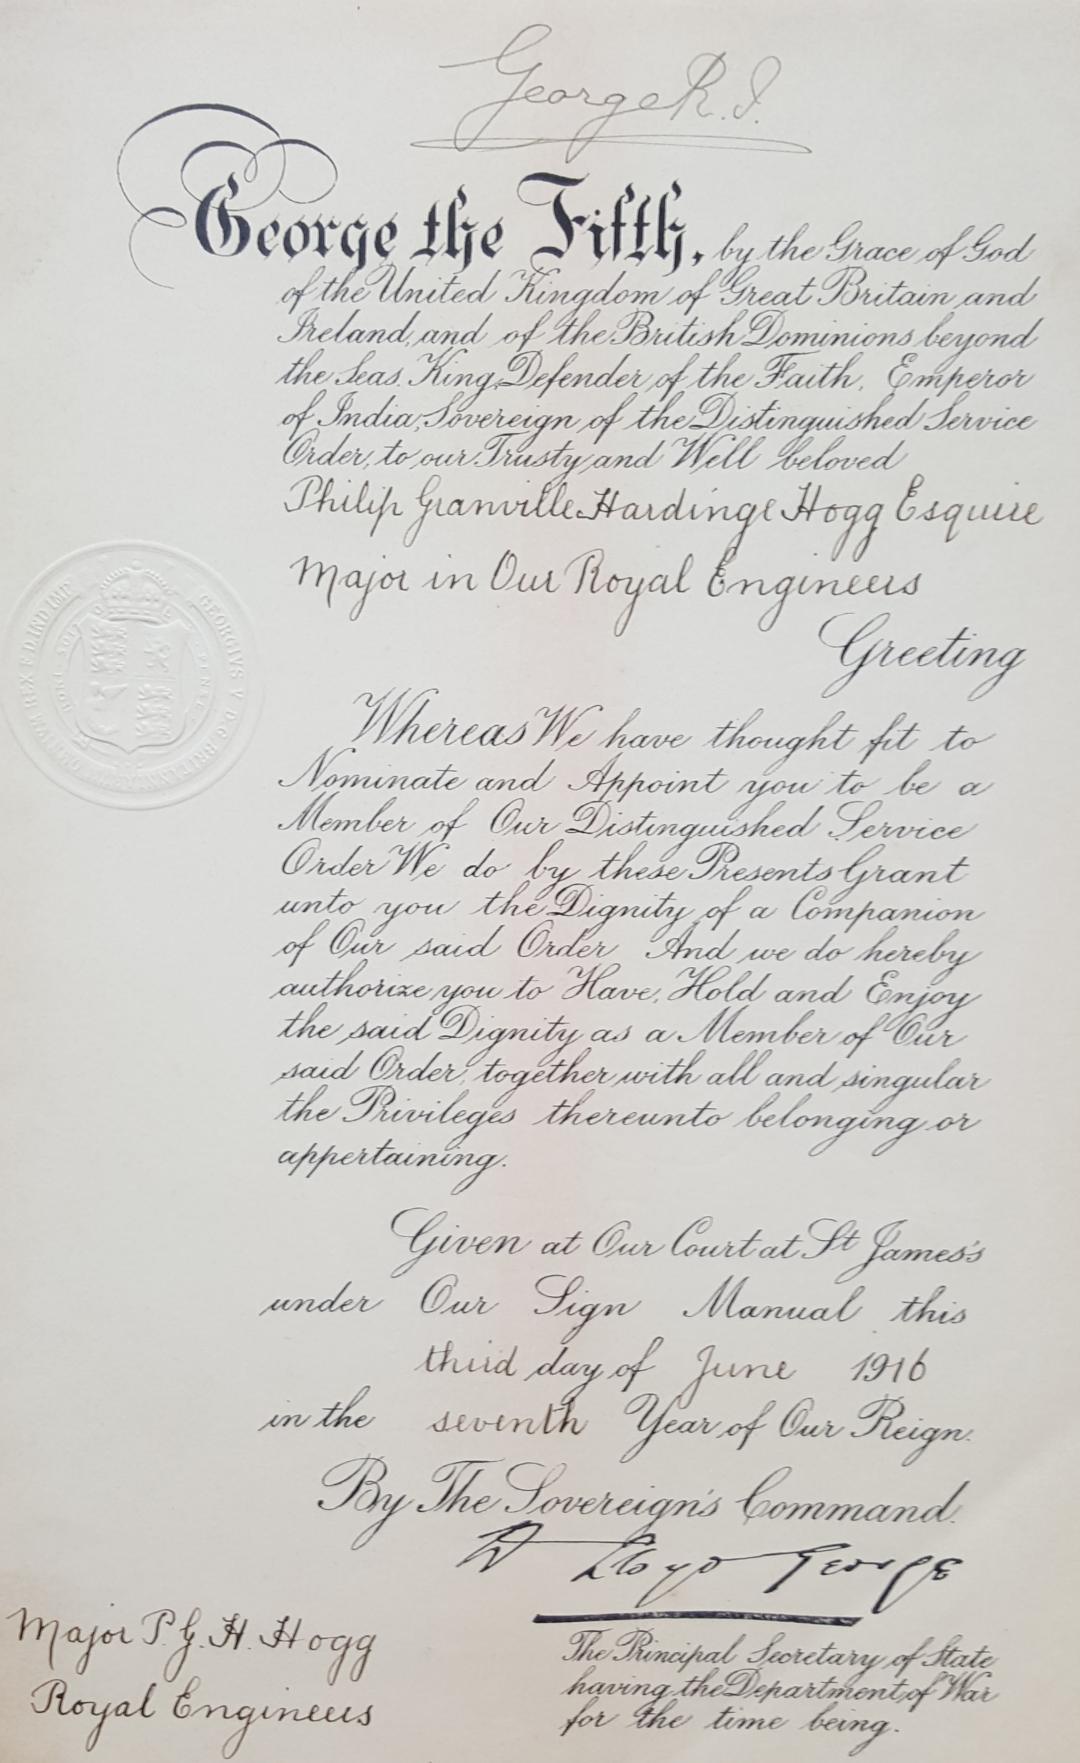 George R.I.
George the Fifth, by the Grace of God
of the United Kingdom of Great Britain and
Ireland, and of the British Dominions beyond
the Seas, King, Defender of the Faith, Emperor
of India, Sovereign of the Distinguished Service
Order, to our Trusty and Well beloved
Philip Granville Hardinge Hogg Esquire
Major in Our Royal Engineers
Greeting
Whereas We have thought fit to
Nominate and Appoint you to be a
Member of Our Distinguished Service
Order We do by these Presents Grant
unto you the Dignity of a Companion
of Our said Order And we do hereby
authorize you to Have, Hold and Enjoy
the said Dignity as a Member of Our
said Order, together with all and singular
the Privileges thereunto belonging or
appertaining.
Given at Our Court at St James's
under Our Sign Manual this
third day of June 1916
in the seventh Year of Our Reign.
By The Sovereign's Command.
D Lloyd George
Major P. G. H. Hogg
Royal Engineers
The Principal Secretary of State
having the Department of War
for the time being.
GEORGIVS V D.G. BRITANNIARVM OMNIVM REX F.D. IND. IMP.